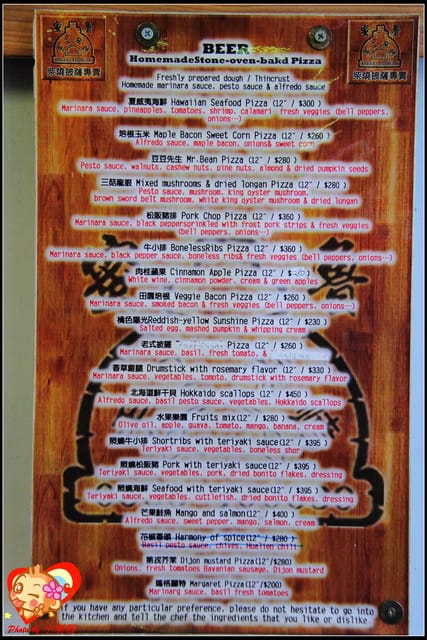 柴燒披薩專賣
柴燒披薩專賣
BEER
HomemadeStone-oven-bakd Pizza
Freshly prepared dough / Thincrust
Homemade marinara sauce, pesto sauce & alfredo sauce
夏威夷海鮮 Hawaiian Seafood Pizza (12" / $300 )
Marinara sauce, pineapples, tomatoes, shrimp, calamari, fresh veggies (bell peppers, onions…)
培根玉米 Maple Bacon Sweet Corn Pizza (12" / $260 )
Alfredo sauce, maple bacon, onions& sweet corn
豆豆先生 Mr.Bean Pizza (12" / $280 )
Pesto sauce, walnuts, cashew nuts, pine nuts, almond & dried pumpkin seeds
三菇龍眼 Mixed mushrooms & dried longan Pizza (12" / $280 )
Pesto sauce, mushroom, king oyster mushroom,
brown sword belt mushroom, white king oyster mushroom & dried longan
松阪豬排 Pork Chop Pizza (12" / $360 )
Marinara sauce, black peppersprinkled with frost pork strips & fresh veggies
(bell peppers, onions…)
牛小排 BonelessRibs Pizza (12" / $360 )
Marinara sauce, black pepper sauce, boneless ribs& fresh veggies (bell peppers, onions…)
肉桂蘋果 Cinnamon Apple Pizza (12" / $
White wine, cinnamon powder, cream & green apples
田園培根 Veggie Bacon Pizza (12" / $260 )
Marinara sauce, smoked bacon & fresh veggies (bell peppers, onions…)
橘色陽光Reddish-yellow Sunshine Pizza (12" / $230 )
Salted egg, mashed pumpkin & whipping cream
老式披薩 Pizza (12" / $260 )
Marinara sauce, basil, fresh tomato, &
香草雞腿 Drumstick with rosemary flavor (12" / $330 )
Marinara sauce, vegetables, tomoto, drumstick with rosemary flavor
北海道鮮干貝 Hokkaido scallops (12" / $450 )
Alfredo sauce, basil pesto sauce, vegetables, Hokkaido scallops
水果樂園 Fruits mix(12" / $280 )
Olive oil, apple, guava, tomato, mango, banana, cream
照燒牛小排 Shortribs with teriyaki sauce(12" / $395 )
Teriyaki sauce, vegetables, boneless shor
照燒松阪豬 Pork with teriyaki sauce(12" / $395 )
Teriyaki sauce, vegetables, pork, dried bonito flakes, dressing
照燒海鮮 Seafood with teriyaki sauce(12" / $395 )
Teriyaki sauce, vegetables, cuttlefish, dried bonito flakes, dressing
芒果鮭魚 Mango and salmon(12" / $400 )
Alfredo sauce, sweet pepper, mango, salmon, cream
花椒香頌 Harmony of spice(12" / $280 )
Basil pesto sauce, chives, Hualien chili
第戎芥茉 Dijon mustard Pizza(12"/$280)
Onions, fresh tomatoes Bavarian sausage, Dijon mustard
瑪格麗特 Margaret Pizza(12"/$200)
Marinarg sauce, basil fresh tomatoes
if you have any particular preference, please do not hesitate to go into
the kitchen and tell the chef the ingredients that you like or dislike.